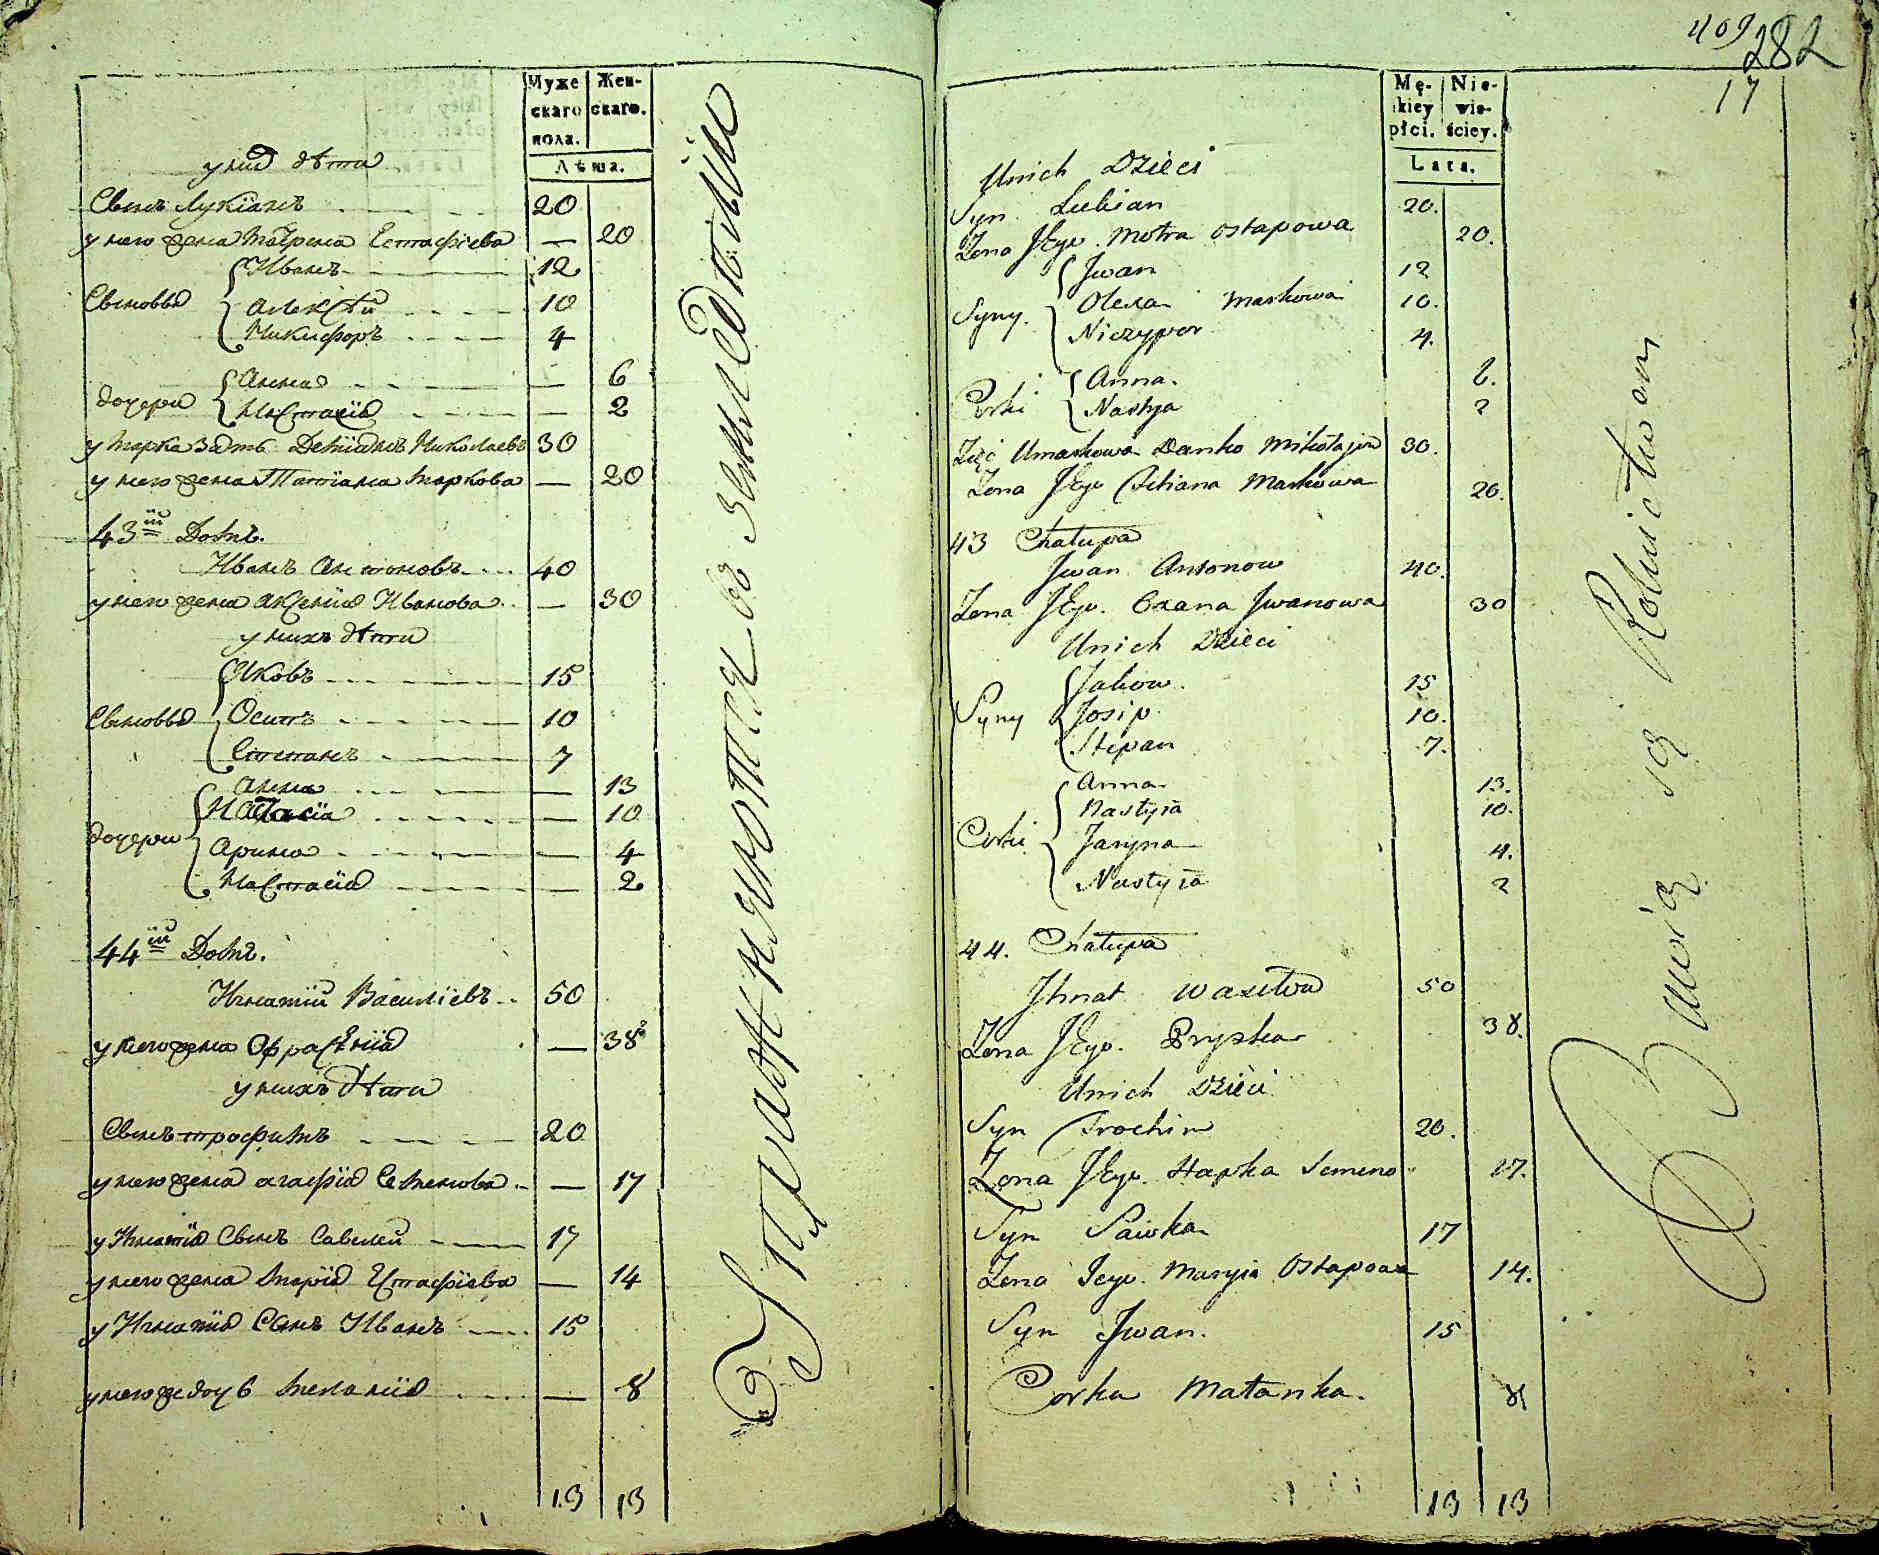 Муже
скаго
пола.
Жен-
скаго.
Лѣта.
у них дѣти
Сынъ Лукіанъ 20
у него жена Матрена Естафіева — 20
Сыновья
Иванъ 12
Алексѣй 10
Никифоръ 4
дочери
Анна — 6
Настасія — 2
у Марка Зять Деміанъ Николаевъ 30
у него жена Татіана Маркова — 20
43й Домъ.
Иванъ Антоновъ 40
у него жена Аксенія Иванова — 30
у нихъ дѣти
Сыновья
Яковъ 15
Осипъ 10
Степанъ 7
дочери
Анна — 13
Настасія — 10
Арина — 4
Настасія — 2
44й Домъ.
Игнатій Василіевъ 50
у него жена Ефросенія — 38
у нихъ дѣти
Сынъ трофимъ 20
у него жена агафія Семенова — 17
у Игнатія Сынъ Савелей 17
у него жена Марія Естафіева — 14
у Игнатія Сынъ Иванъ 15
у него же дочь Меланія — 8
13 13
Упражняются в земледѣліи
409
282
17
Mę-
kiey
płci.
Nie-
wie-
ściey.
Lata.
Unich Dzieci
Syn Lukian 20.
Zona Jego. Motra Ostapowa 20.
Syny.
Jwan 12
Olexa Markowa 10.
Niczypor 4.
Corki
Anna. 6.
Nastya 2
Zięć Umarkowa Danko Mikołajow 30.
Zona Jego Tetiana Markowa 20.
43 Chałupa
Jwan Antonow 40.
Zona Jego. Oxana Jwanowa 30
Unich Dzieci
Syny
Jakow. 15
Josip. 10.
Stepan 7.
Corki
Anna 13.
Nastyia 10.
Jaryna 4.
Nastyia 2
44. Chałupa
Jhnat Wasilow 50
Zona Jego. Pryska 38.
Unich Dzieci
Syn Trochim 20.
Zona Jego. Hapka Semeno 17.
Syn Sawka 17
Zona Jego. Maryia Ostapowa 14.
Syn Jwan. 15
Corka Małanka. 8
13 13
Bawią się Rolnictwem